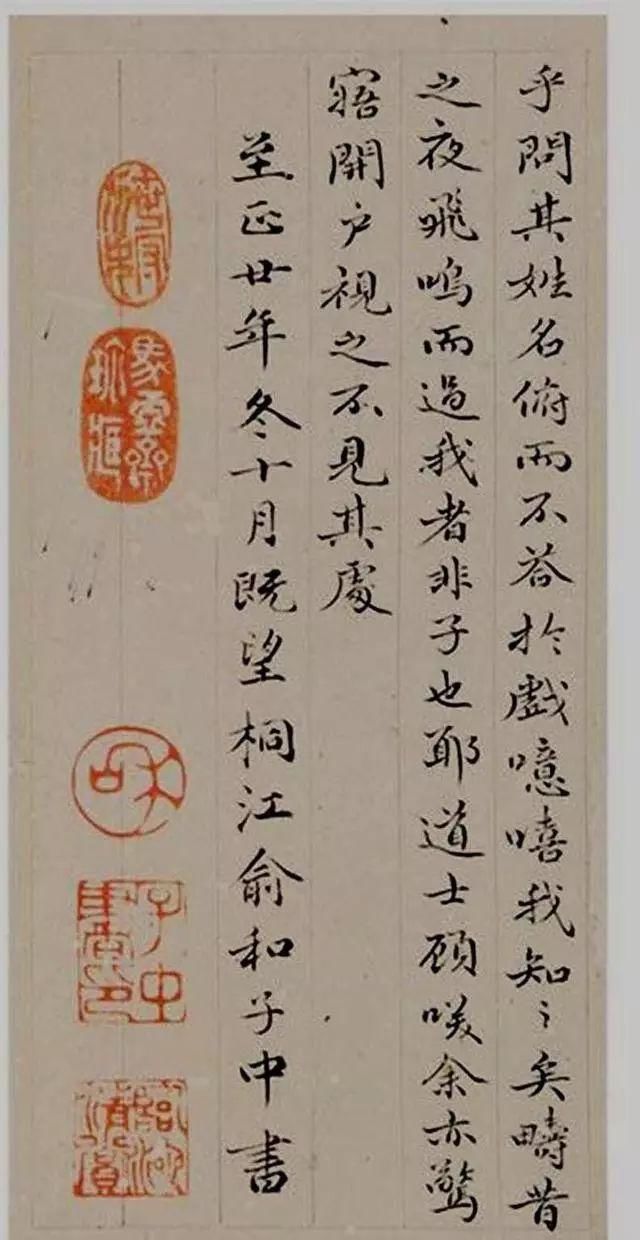 乎問其姓名俯而不荅扵戲噫嘻我知〻矣疇昔
之夜飛鳴而過我者非子也耶道士顧咲余亦驚
寤開户視之不見其處
至正廿年冬十月既望桐江俞和子中書